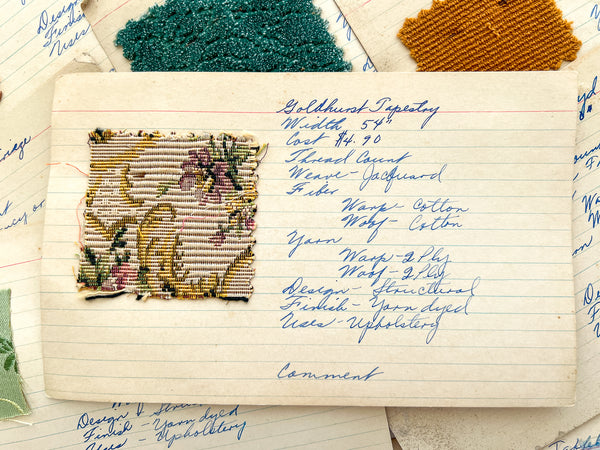 Design
Finish
Uses
Goldhurst Tapestry
Width 54"
Cost $4.90
Thread Count
Weave - Jacquard
Fiber
Warp - Cotton
Woof - Cotton
Yarn
Warp - 2 Ply
Woof - 2 Ply
Design - Structural
Finish - Yarn dyed
Uses - Upholstery
Comment
Design
Finish - Yarn dyed
Uses - Upholstery